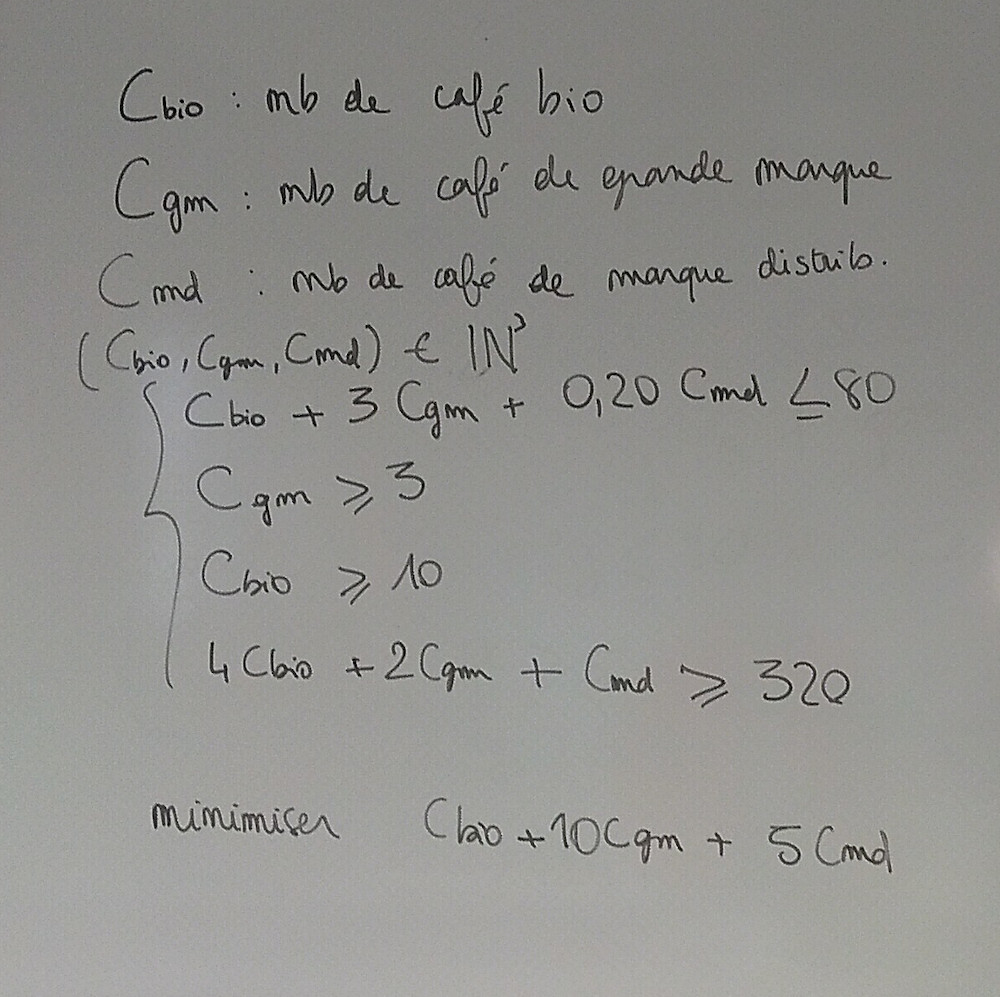 Cbio : nb de café bio
Cgm : nb de café de grande marque
Cmd : nb de café de marque distrib.
(Cbio, Cgm, Cmd) ∈ ℕ³
Cbio + 3 Cgm + 0,20 Cmd ≤ 80
Cgm ⩾ 3
Cbio ⩾ 10
4 Cbio + 2 Cgm + Cmd ⩾ 320
minimiser Cbio + 10 Cgm + 5 Cmd